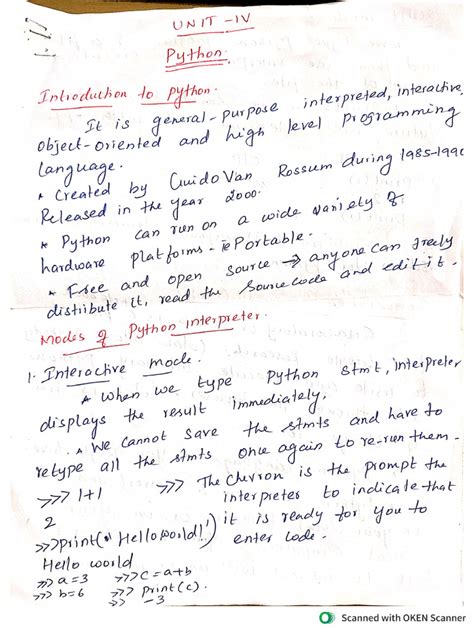 UNIT-IV
Python.
Introduction to python.
It is general-purpose interpreted, interactive,
object-oriented and high level programming
language.
* Created by Guido Van Rossum during 1985-1990
Released in the year 2000.
* Python can run on a wide variety of
hardware platforms - ie Portable.
* Free and open source → anyone can freely
distribute it, read the source code and edit it.
Modes of Python interpreter.
1. Interactive mode.
* When we type Python stmt, interpreter
displays the result immediately.
* We cannot save the stmts and have to
retype all the stmts once again to re-run them.
>>> 1+1 >>> The chevron is the prompt the
2 interpreter to indicate that
>>> print(' Hello world!') it is ready for you to
Hello world enter code.
>>> a=3 >>> c=a+b
>>> b=6 >>> print(c).
Scanned with OKEN Scanner